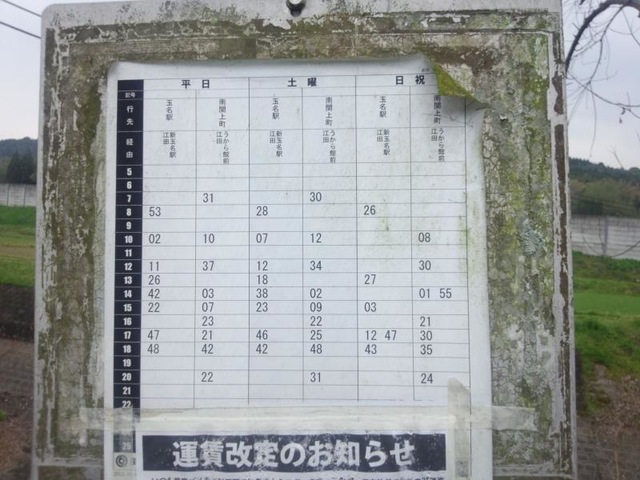 平日 土曜 日祝
記号
行先 玉名駅 南関上町 玉名駅 南関上町 玉名駅 南関上町
経由 新玉名駅 江田 うから館前 江田 新玉名駅 江田 うから館前 江田 新玉名駅 江田 うから館前 江田
5
6
7 31 30
8 53 28 26
9
10 02 10 07 12 08
11
12 11 37 12 34 30
13 26 18 27
14 42 03 38 02 01 55
15 22 07 23 09 03
16 23 22 21
17 47 21 46 25 12 47 30
18 48 42 42 48 43 35
19
20 22 31 24
21
22
運賃改定のお知らせ